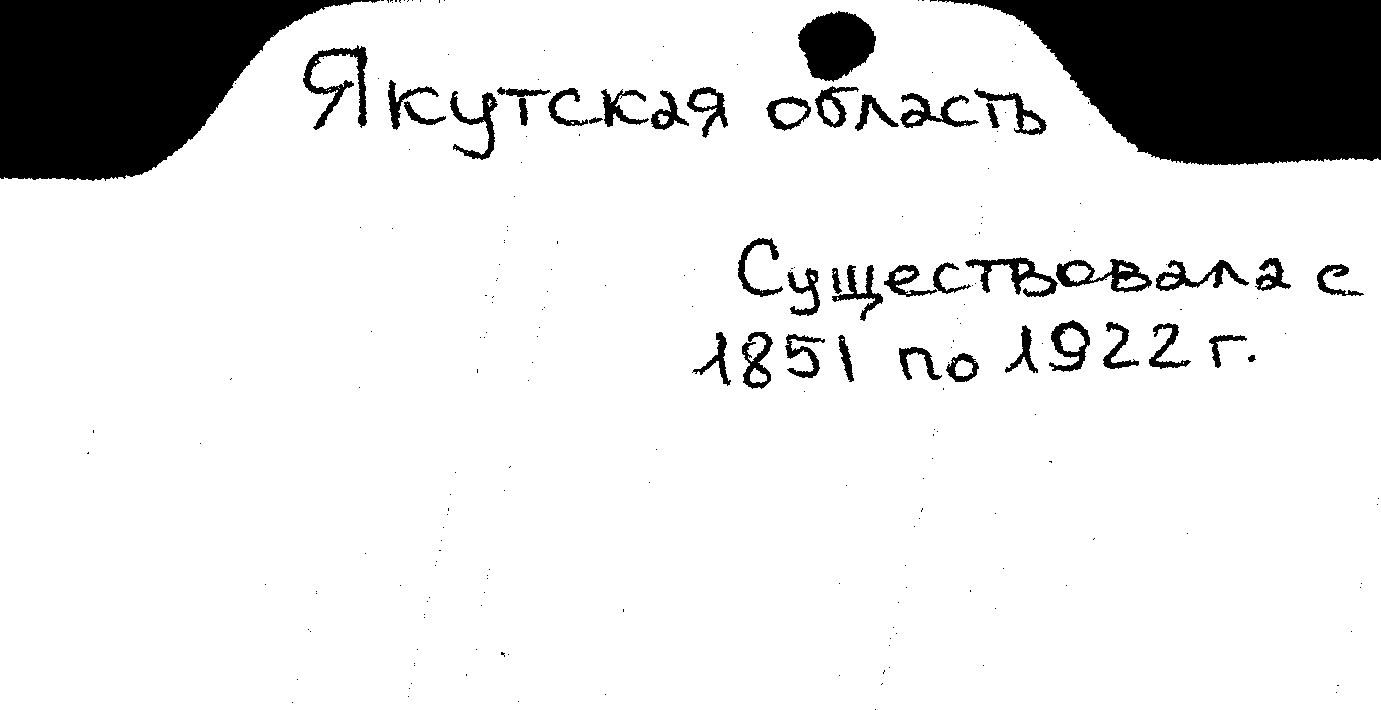 Якутская область
Существовала с
1851 по 1922 г.